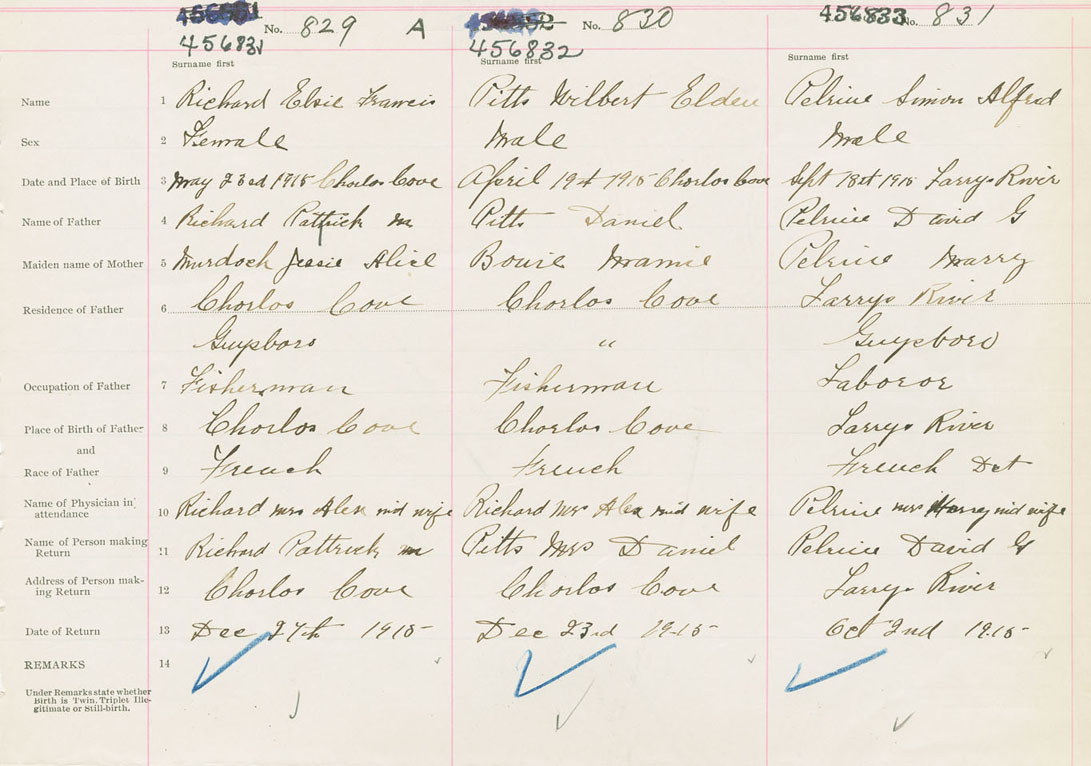 No. 829 A No. 830 456833 No. 831
456831 456832
Surname first Surname first Surname first
Name 1 Richard Elsie Francis Pitts Wilbert Elden Pelrine Simon Alfred
Sex 2 Female Male Male
Date and Place of Birth 3 May 23ed 1915 Chorlos Cove April 19t 1915 Chorlos Cove Sept 18st 1915 Larrys River
Name of Father 4 Richard Pattrick M Pitts Daniel Pelrine David G
Maiden name of Mother 5 Murdoch Jessie Alice Bouie Mamie Pelrine Marry
Residence of Father 6 Chorlos Cove Chorlos Cove Larrys River
Guysboro " Guysboro
Occupation of Father 7 Fisherman Fisherman Laboror
Place of Birth of Father 8 Chorlos Cove Chorlos Cove Larrys River
and
Race of Father 9 French French French
Name of Physician in attendance 10 Richard Mrs Alex mid wife Richard Mrs Alex mid wife Pelrine Mrs mid wife
Name of Person making Return 11 Richard Pattrick M Pitts Mrs Daniel Pelrine David G
Address of Person making Return 12 Chorlos Cove Chorlos Cove Larrys River
Date of Return 13 Dec 27th 1915 Dec 23rd 1915 Oct 2nd 1915
REMARKS 14
Under Remarks state whether
Birth is Twin, Triplet Ille-
gitimate or Still-birth.